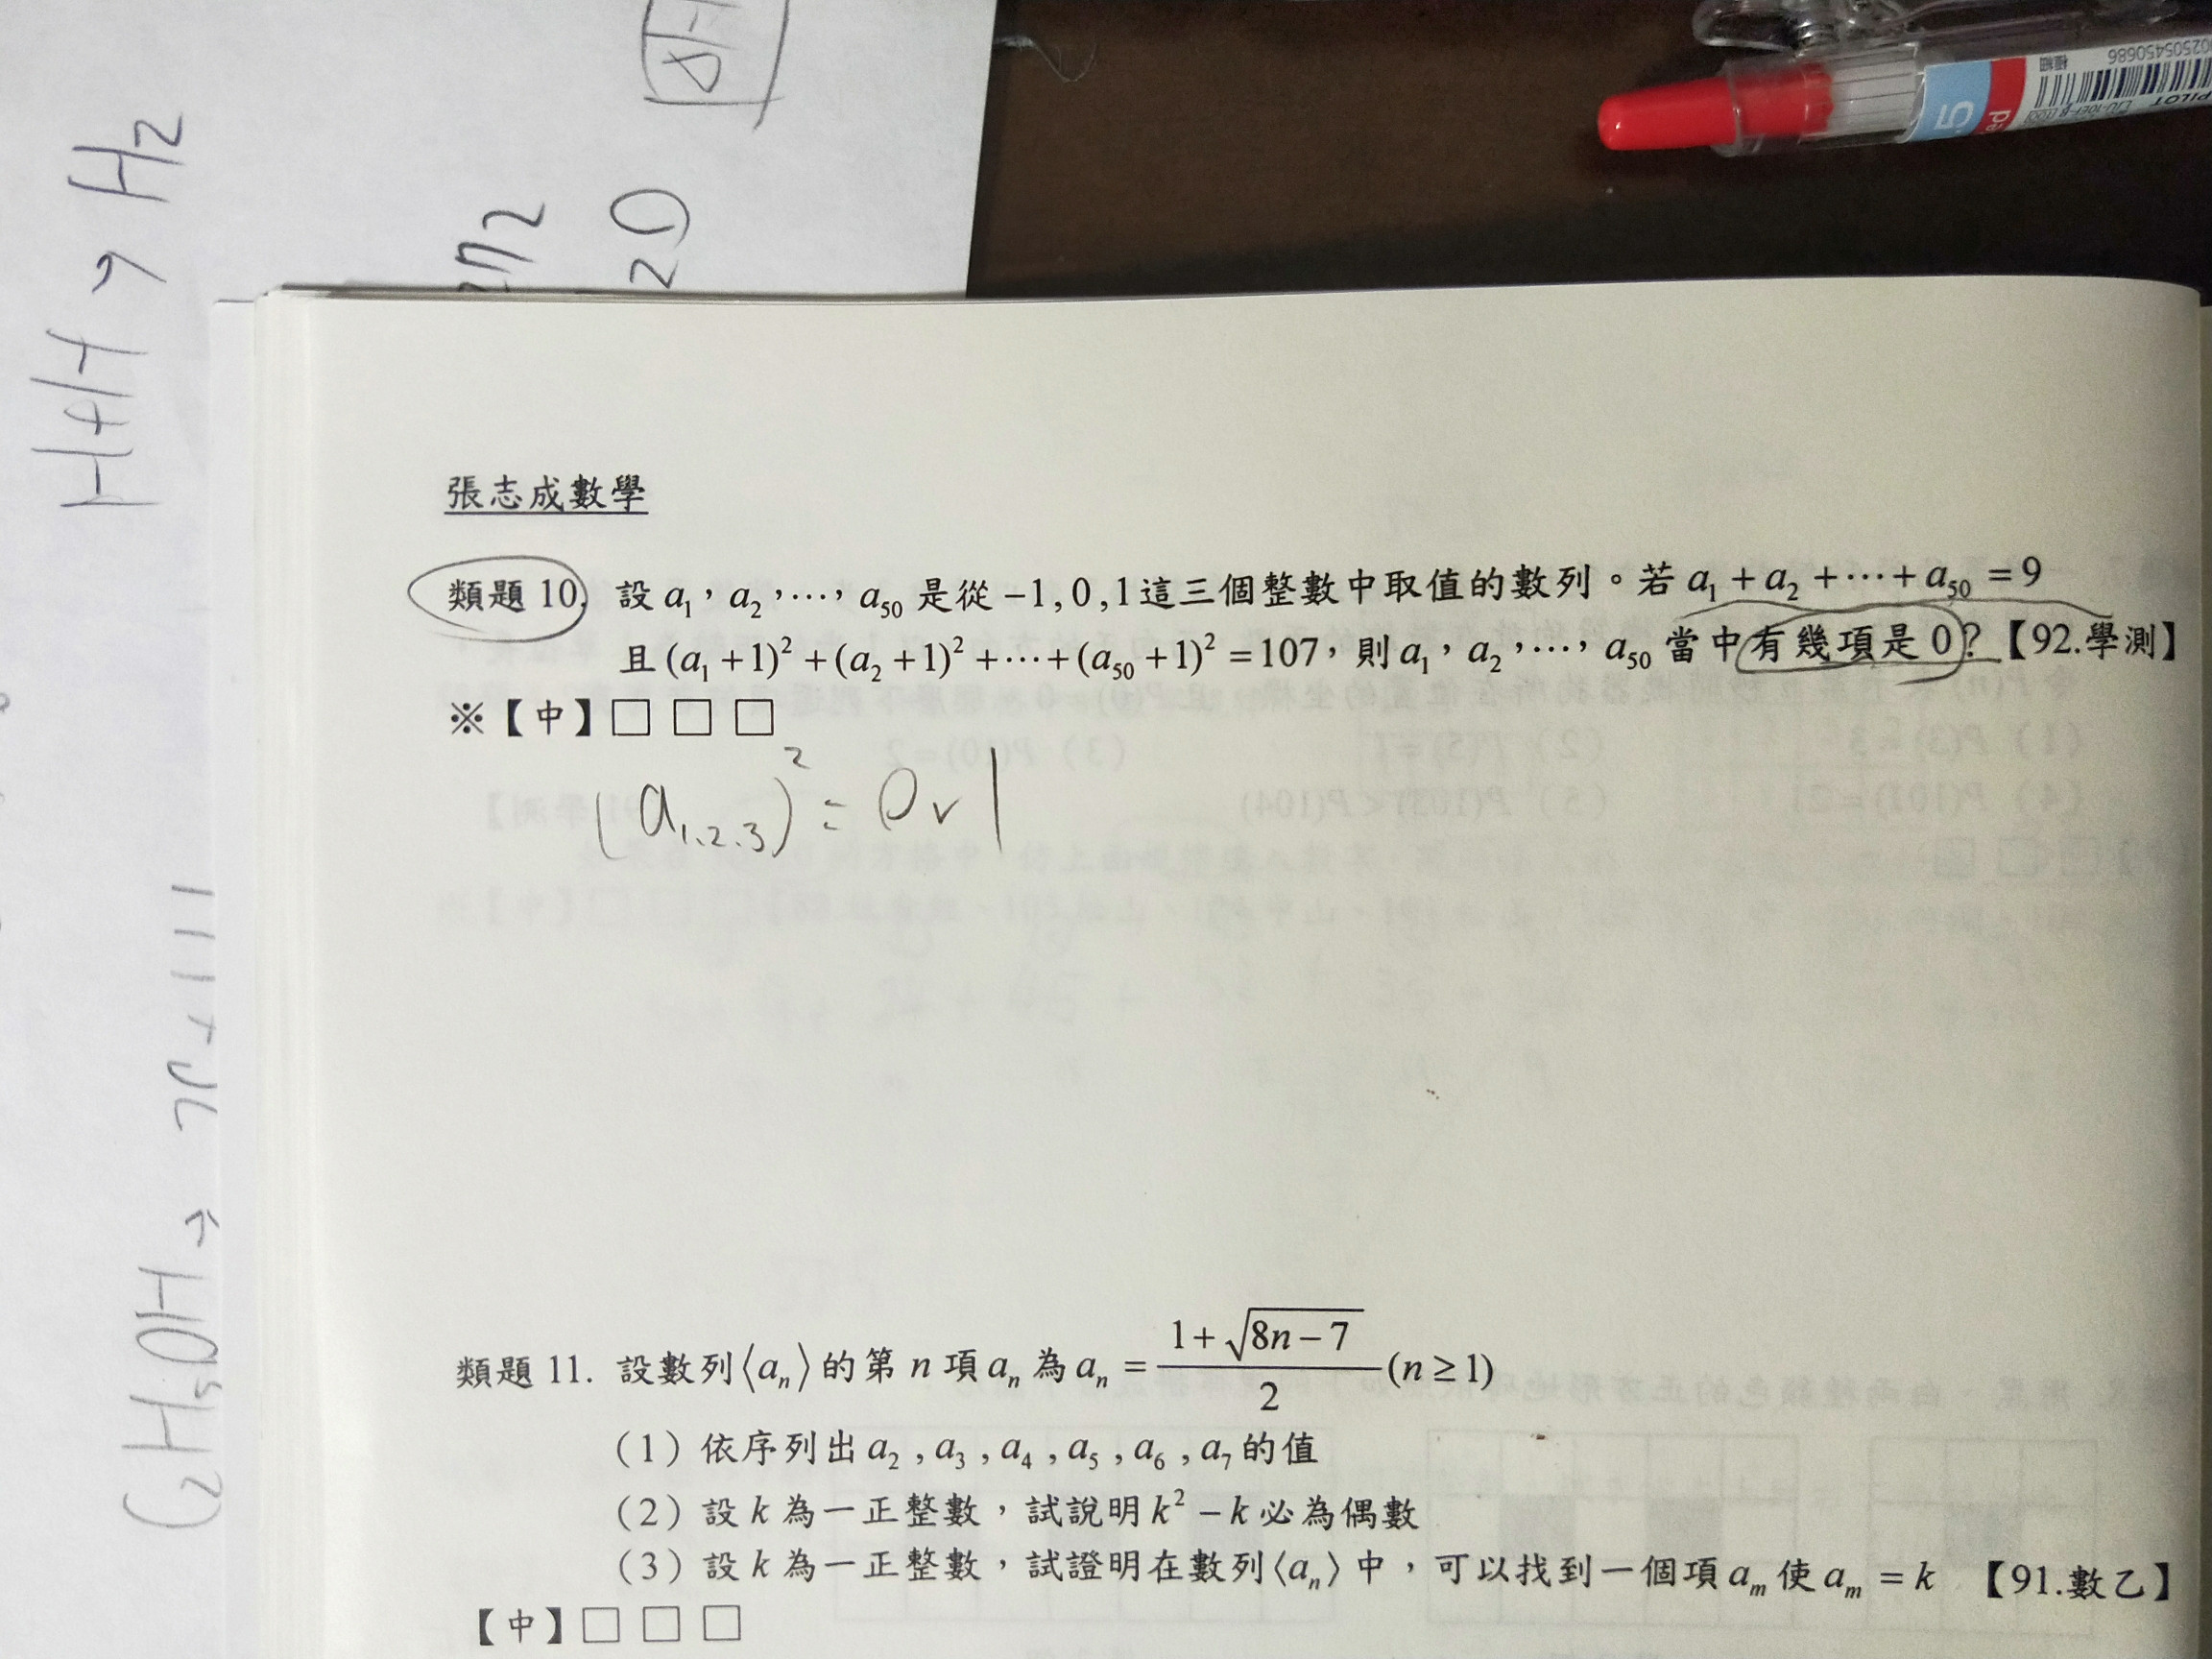 H+H → H₂
20
張志成數學
類題 10. 設 a₁，a₂，⋯，a₅₀ 是從 −1, 0, 1 這三個整數中取值的數列。若 a₁ + a₂ + ⋯ + a₅₀ = 9
且 (a₁ + 1)² + (a₂ + 1)² + ⋯ + (a₅₀ + 1)² = 107，則 a₁，a₂，⋯，a₅₀ 當中有幾項是 0？【92.學測】
※【中】□ □ □
(a₁.₂.₃)² = 0 ∨ 1
類題 11. 設數列⟨aₙ⟩的第 n 項 aₙ 為 aₙ = (1 + √(8n − 7))/2 (n ≥ 1)
（1）依序列出 a₂ , a₃ , a₄ , a₅ , a₆ , a₇ 的值
（2）設 k 為一正整數，試說明 k² − k 必為偶數
（3）設 k 為一正整數，試證明在數列⟨aₙ⟩中，可以找到一個項 aₘ 使 aₘ = k 【91.數乙】
【中】□ □ □
PILOT